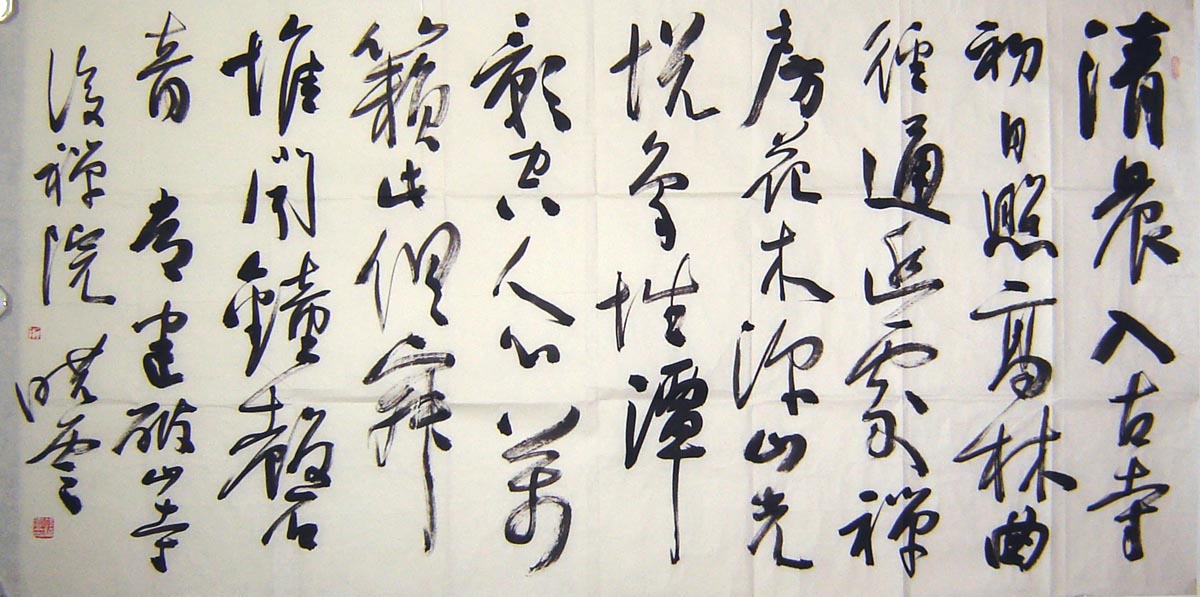 清晨入古寺
初日照高林曲
徑通幽處禪
房花木深山光
悦鳥性潭
影空人心萬
籟此俱寂
惟聞鐘磬
音 常建破山寺
後禪院 曉雲